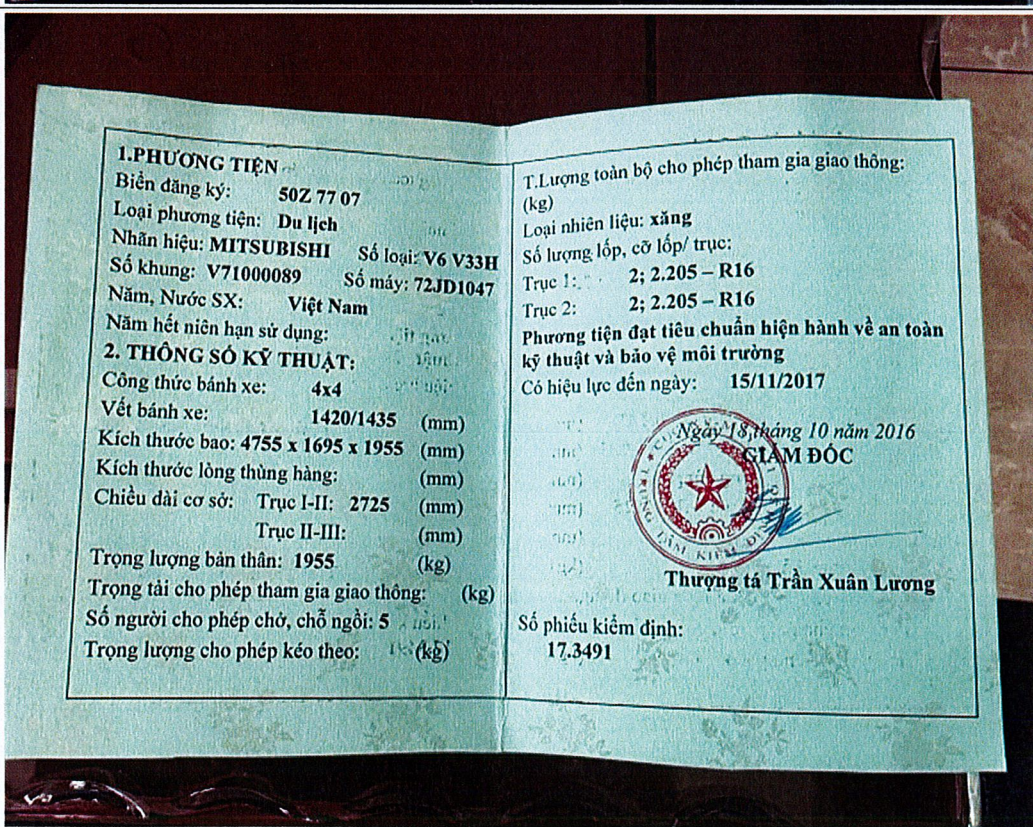 1.PHƯƠNG TIỆN
Biển đăng ký: 50Z 77 07
Loại phương tiện: Du lịch
Nhãn hiệu: MITSUBISHI Số loại: V6 V33H
Số khung: V71000089 Số máy: 72JD1047
Năm, Nước SX: Việt Nam
Năm hết niên hạn sử dụng:
2. THÔNG SỐ KỸ THUẬT:
Công thức bánh xe: 4x4
Vết bánh xe: 1420/1435 (mm)
Kích thước bao: 4755 x 1695 x 1955 (mm)
Kích thước lòng thùng hàng: (mm)
Chiều dài cơ sở: Trục I-II: 2725 (mm)
Trục II-III: (mm)
Trọng lượng bản thân: 1955 (kg)
Trọng tải cho phép tham gia giao thông: (kg)
Số người cho phép chở, chỗ ngồi: 5
Trọng lượng cho phép kéo theo: (kg)
T.Lượng toàn bộ cho phép tham gia giao thông:
(kg)
Loại nhiên liệu: xăng
Số lượng lốp, cỡ lốp/ trục:
Trục 1: 2; 2.205 – R16
Trục 2: 2; 2.205 – R16
Phương tiện đạt tiêu chuẩn hiện hành về an toàn
kỹ thuật và bảo vệ môi trường
Có hiệu lực đến ngày: 15/11/2017
Ngày 18 tháng 10 năm 2016
GIÁM ĐỐC
TRUNG TÂM KIỂM ĐỊNH
Thượng tá Trần Xuân Lương
Số phiếu kiểm định:
17.3491